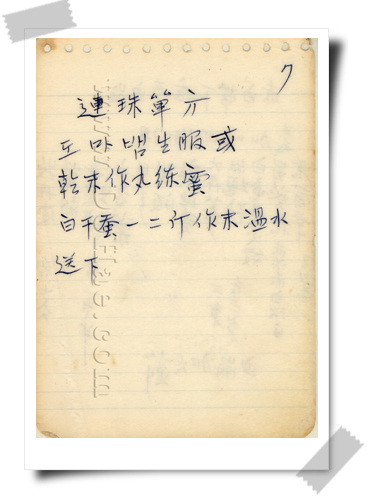 7
連珠單方
도마뱀生服或
乾末作丸練蜜
白干蚕一二个作末溫水
送下